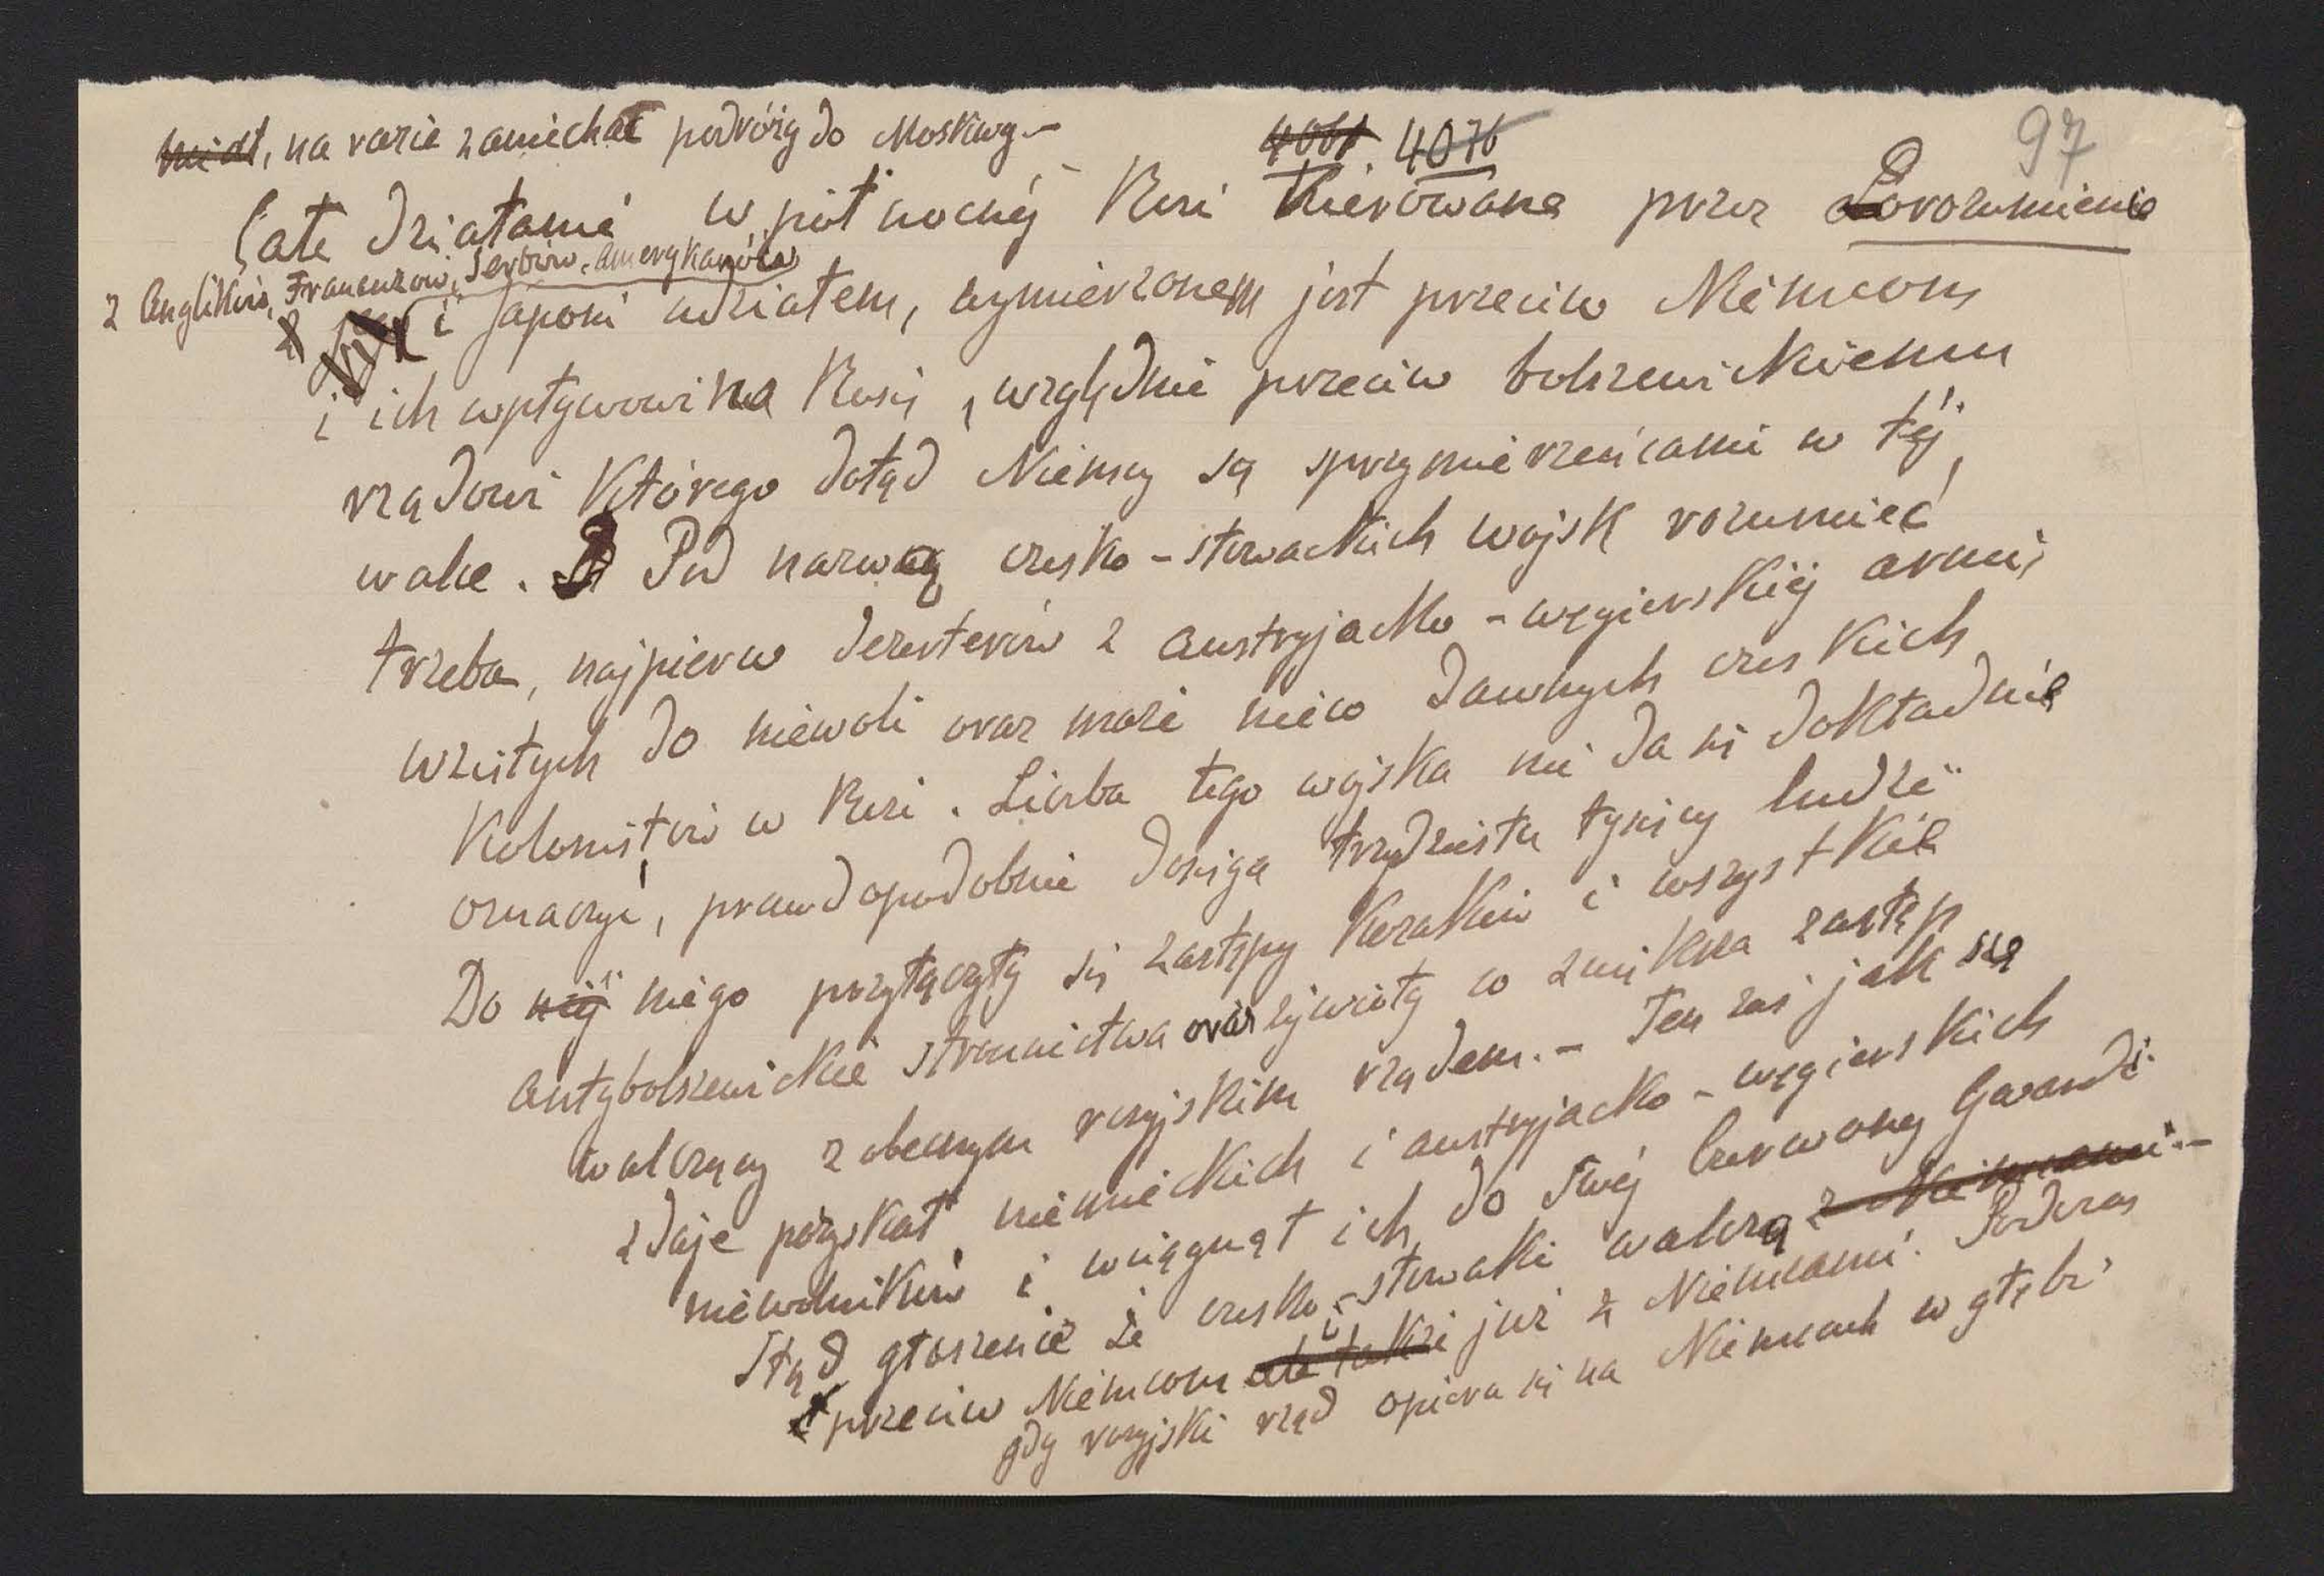 97
4061. 4076
miał, na razie zaniechać podróży do Moskwy.-
Całe działanie w północnéj Rosi Kierowane przez Porozumienie
z Anglików, Francuzów, Serbów, Amerykanów
i Japoni udziałem, wymierzonem jest przeciw Niemcom
i ich wpływowi na Rosię, względnie przeciw bolszewickiemu
rządowi Którego dotąd Niemcy są sprzymierzeńcami w téj
walce. Pod nazwą czesko-słowackich wojsk rozumieć
trzeba, najpierw dezerterów z austryjacko-węgierskiéj armii
wziętych do niewoli oraz może nieco dawnych czeskich
Kolonistów w Rosi. Liczba tego wojska nie da się dokładnie
oznaczyć, prawdopodobnie dosięga trzydziestu tysięcy ludzi
Do niéj niego przyłączyły się zastępy Kozaków i wszystkie
antybolszewickie stronnictwa oraz żywioły co zwiększa zastęp
walczący z obecnym rosyjskim rządem.- Ten zaś jak się
zdaje pozyskał niemieckich i austryjacko-węgierskich
niewolników i wciągnął ich do swéj Czerwonej Gwardi.
Stąd głoszenie że czesko-słowaki walczą z Niemcami.-
przeciw Niemcom ale także już z Niemcami. Podczas
gdy rosyjski rząd opiera się na Niemcach w głębi